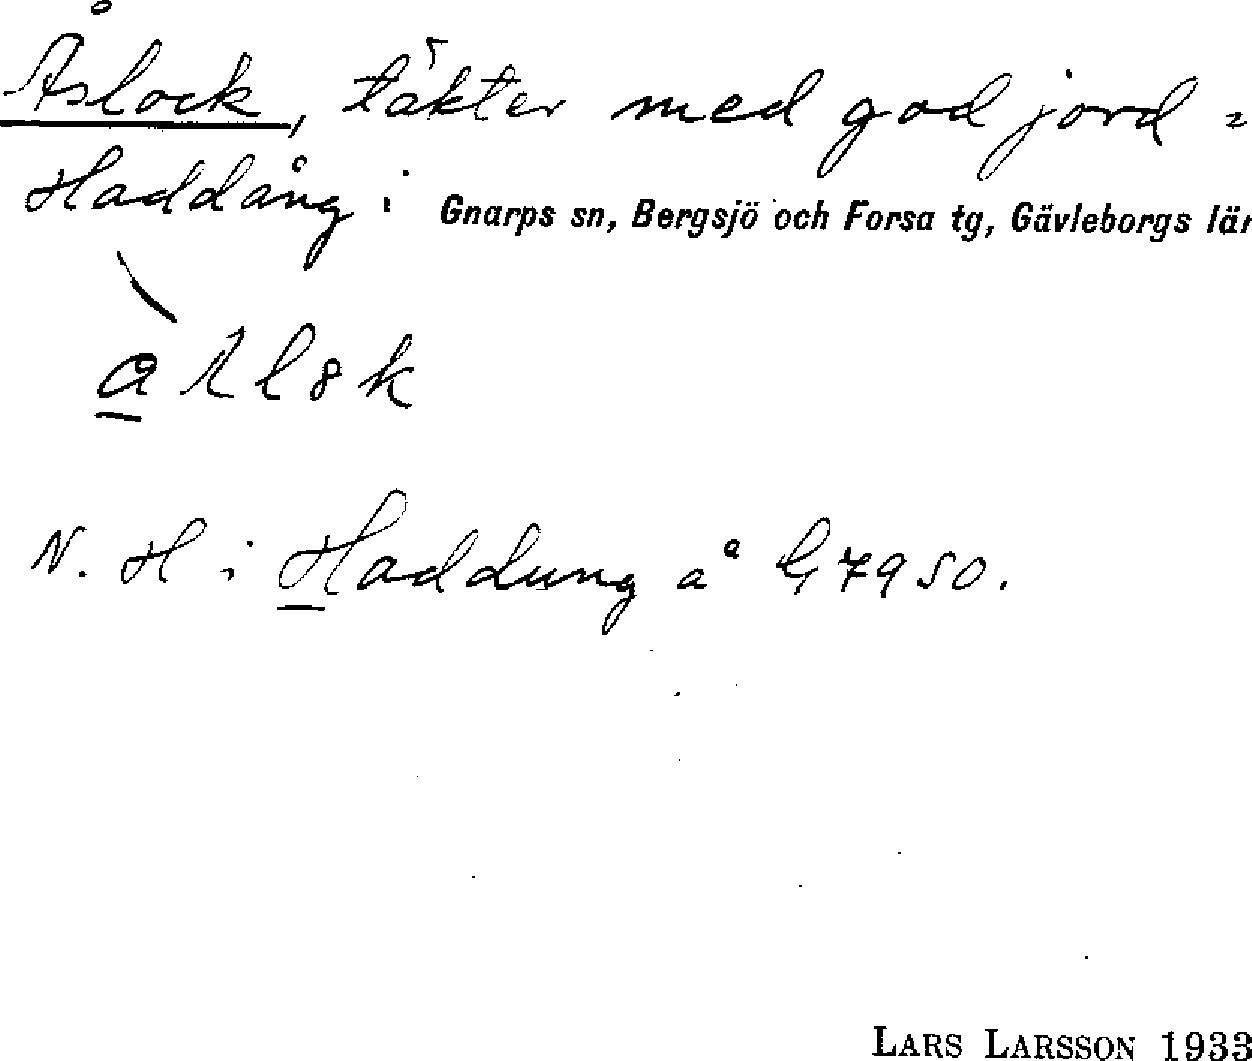 Åslock, täkter med god jord =
Haddång i Gnarps sn, Bergsjö och Forsa tg, Gävleborgs län
N. H i Haddung å G7950.
LARS LARSSON 1933